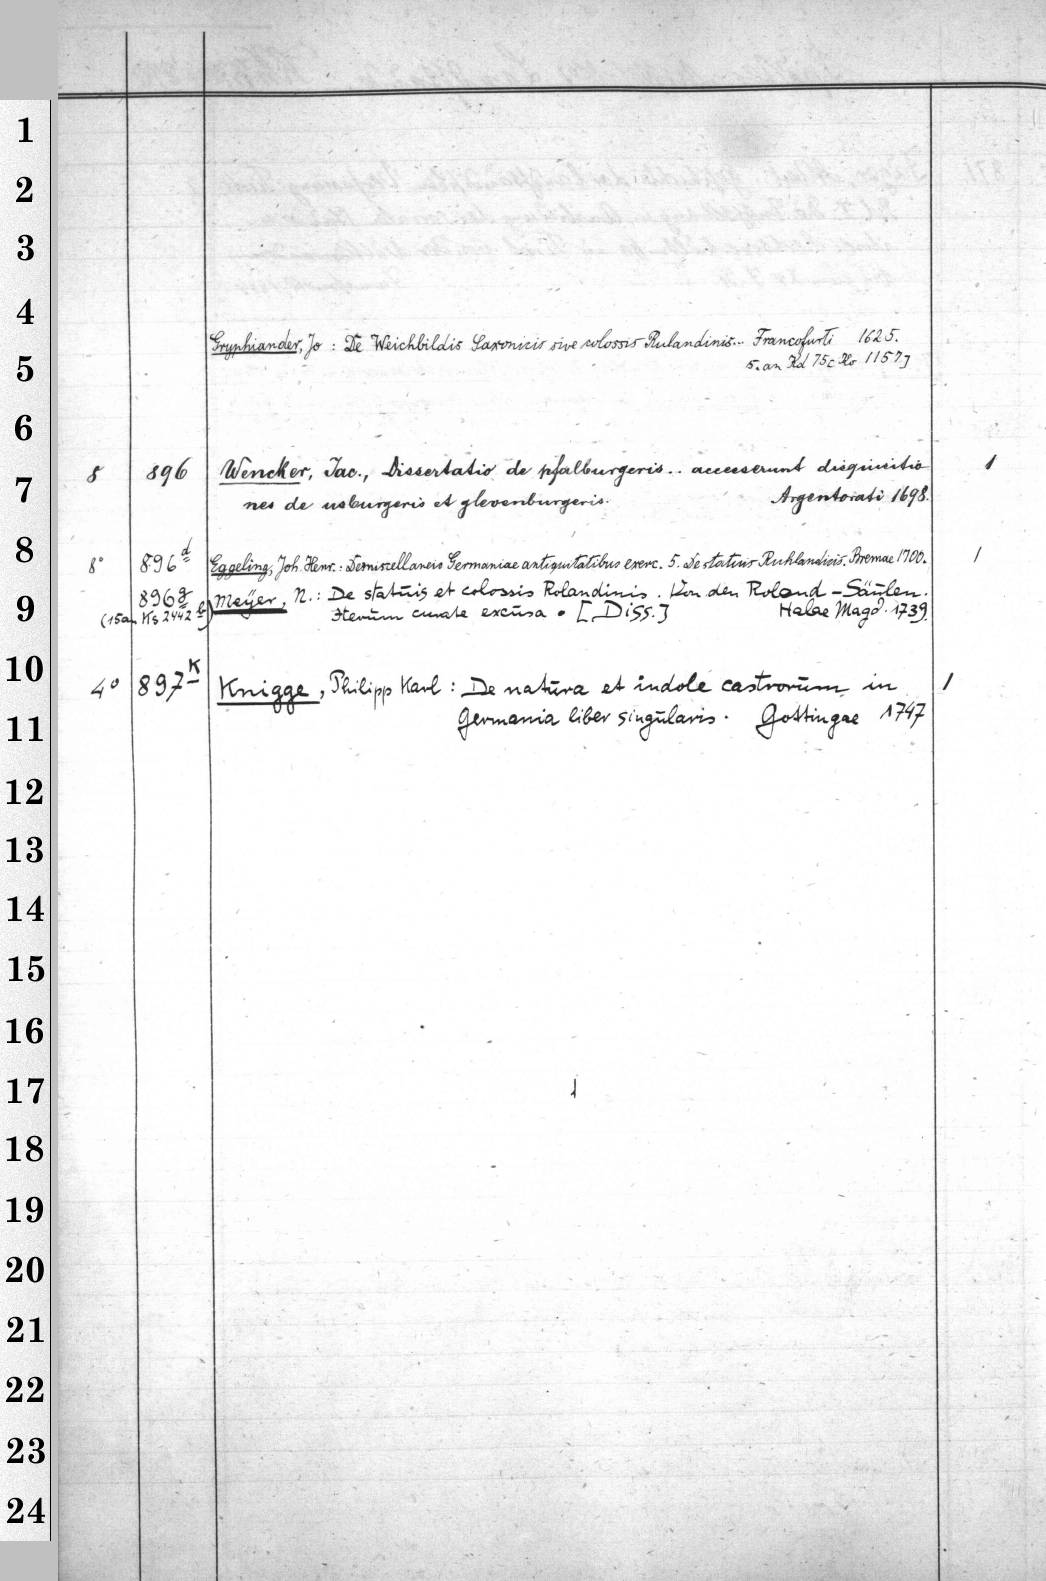 1
2
3
4
Gryphiander, Jo : De Weichbildis Saxonicis sive colossis Rulandinis... Francofurti 1625.
5
s. an Kd 75c Ho 1157]
6
8 896 Wencker, Jac., Dissertatio de pfalburgeris.. accesserunt disquisitio 1
7
nes de usburgeris et glevenburgeris. Argentorati 1698.
8
8° 896d Eggeling, Joh. Henr.: De miscellaneis Germaniae antiquitatibus exerc. 5. de statuis Ruhlandicis. Bremae 1700. 1
896g Meyer, N.: De statuis et colossis Rolandinis. Von den Roland-Säulen.
9
(15an Ks 2442 Iterum curate excusa. [Diss.] Halae Magd. 1739.
10
4° 897K Knigge, Philipp Karl : De natura et indole castrorum in 1
11
Germania liber singularis. Gottingae 1747
12
13
14
15
16
17
18
19
20
21
22
23
24